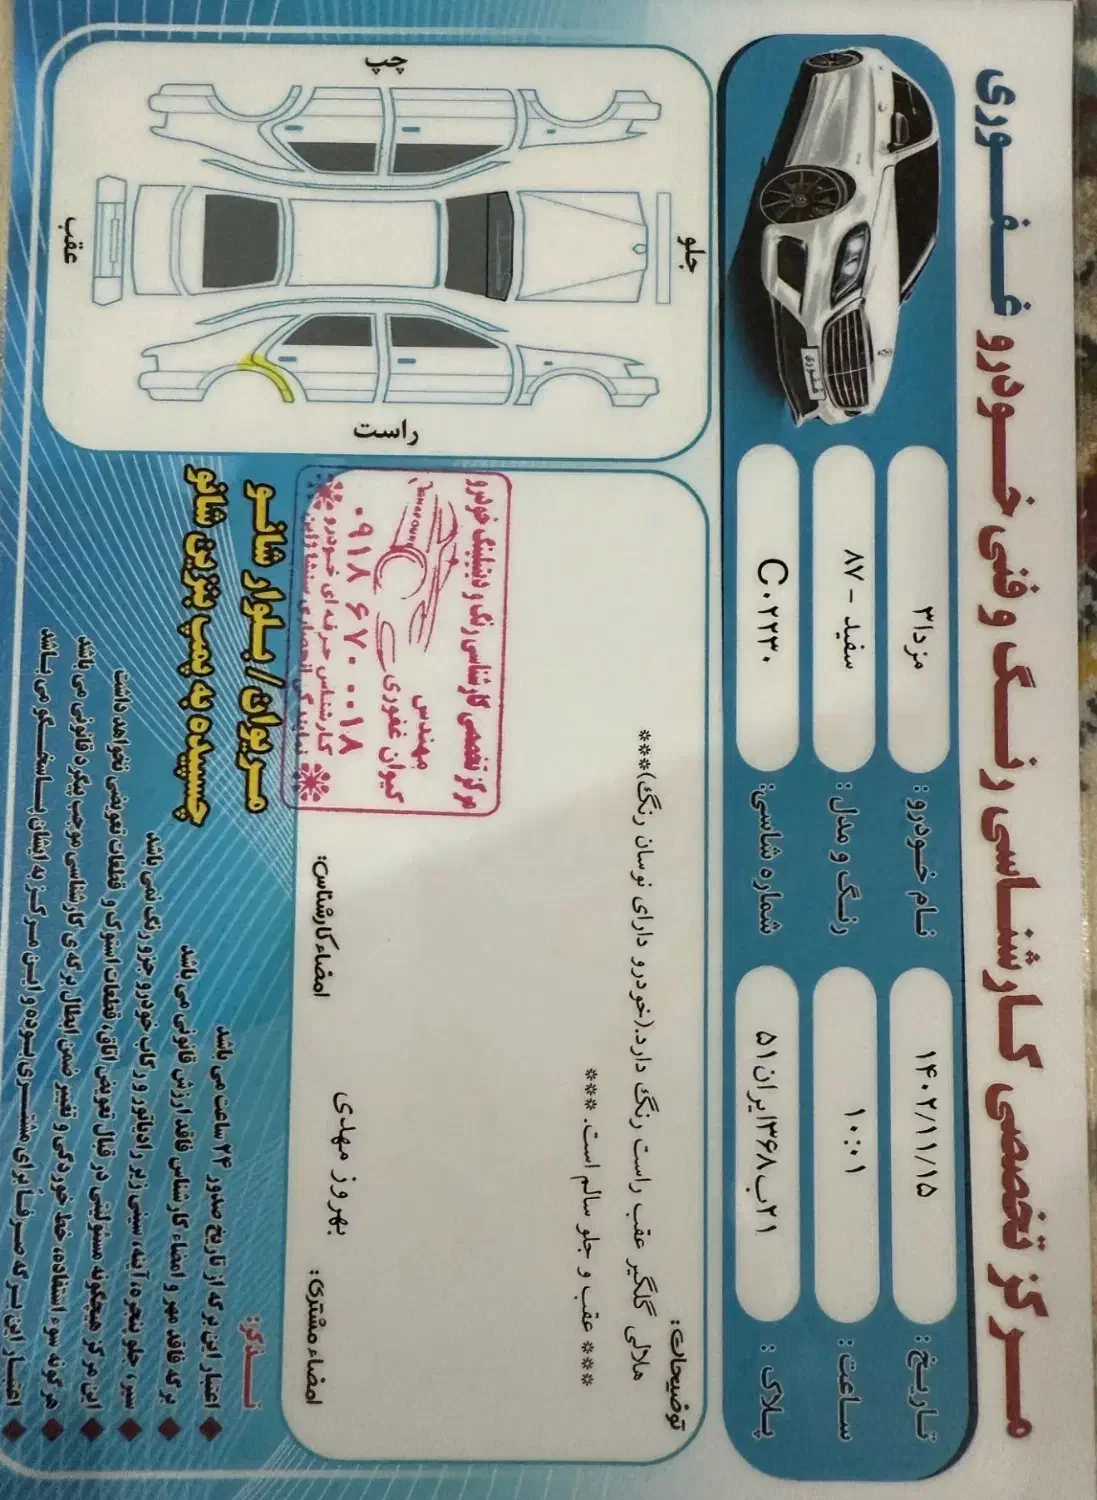 مرکز تخصصی کارشناسی رنگ و فنی خودرو غفوری
تاریخ: ۱۴۰۲/۱۱/۱۵
نام خودرو: مزدا۳
ساعت: ۱۰:۰۱
رنگ و مدل: سفید - ۸۷
پلاک: ۲۱ب۳۶۸ایران۵۱
شماره شاسی: C۰۲۲۳۰
غفوری
توضیحات:
هلالی گلگیر عقب راست رنگ دارد.(خودرو دارای نوسان رنگ)***
*** عقب و جلو سالم است. ***
جلو
چپ
راست
عقب
مرکز تخصصی کارشناسی رنگ و دیتیلینگ خودرو
GHAFOURI
مهندس
کیوان غفوری
۰۹۱۸ ۶۷۰ ۰۰۱۸
کارشناس حرفه ای خودرو
امضاء مشتری:
بهروز مهدی
امضاء کارشناس:
مریوان / بلوار شانو
چسبیده به پمپ بنزین شانو
تذکر:
اعتبار این برگه از تاریخ صدور ۲۴ ساعت می باشد
برگه فاقد مهر و امضاء کارشناس فاقد ارزش قانونی می باشد
سپر، جلو پنجره، آینه، سینی زیر رادیاتور و رکاب خودرو جزو رنگ نمی باشد
این مرکز هیچگونه مسئولیتی در قبال تعویض اتاق، قطعات استوک و قطعات تعویضی نخواهد داشت
هرگونه سوء استفاده، خط خوردگی و تغییر ضمن ابطال برگه ی کارشناسی موجب پیگرد قانونی می باشد
اعتبار این برگه صرفاً برای مشتری بوده و این مرکز به ایشان پاسخگو می باشد